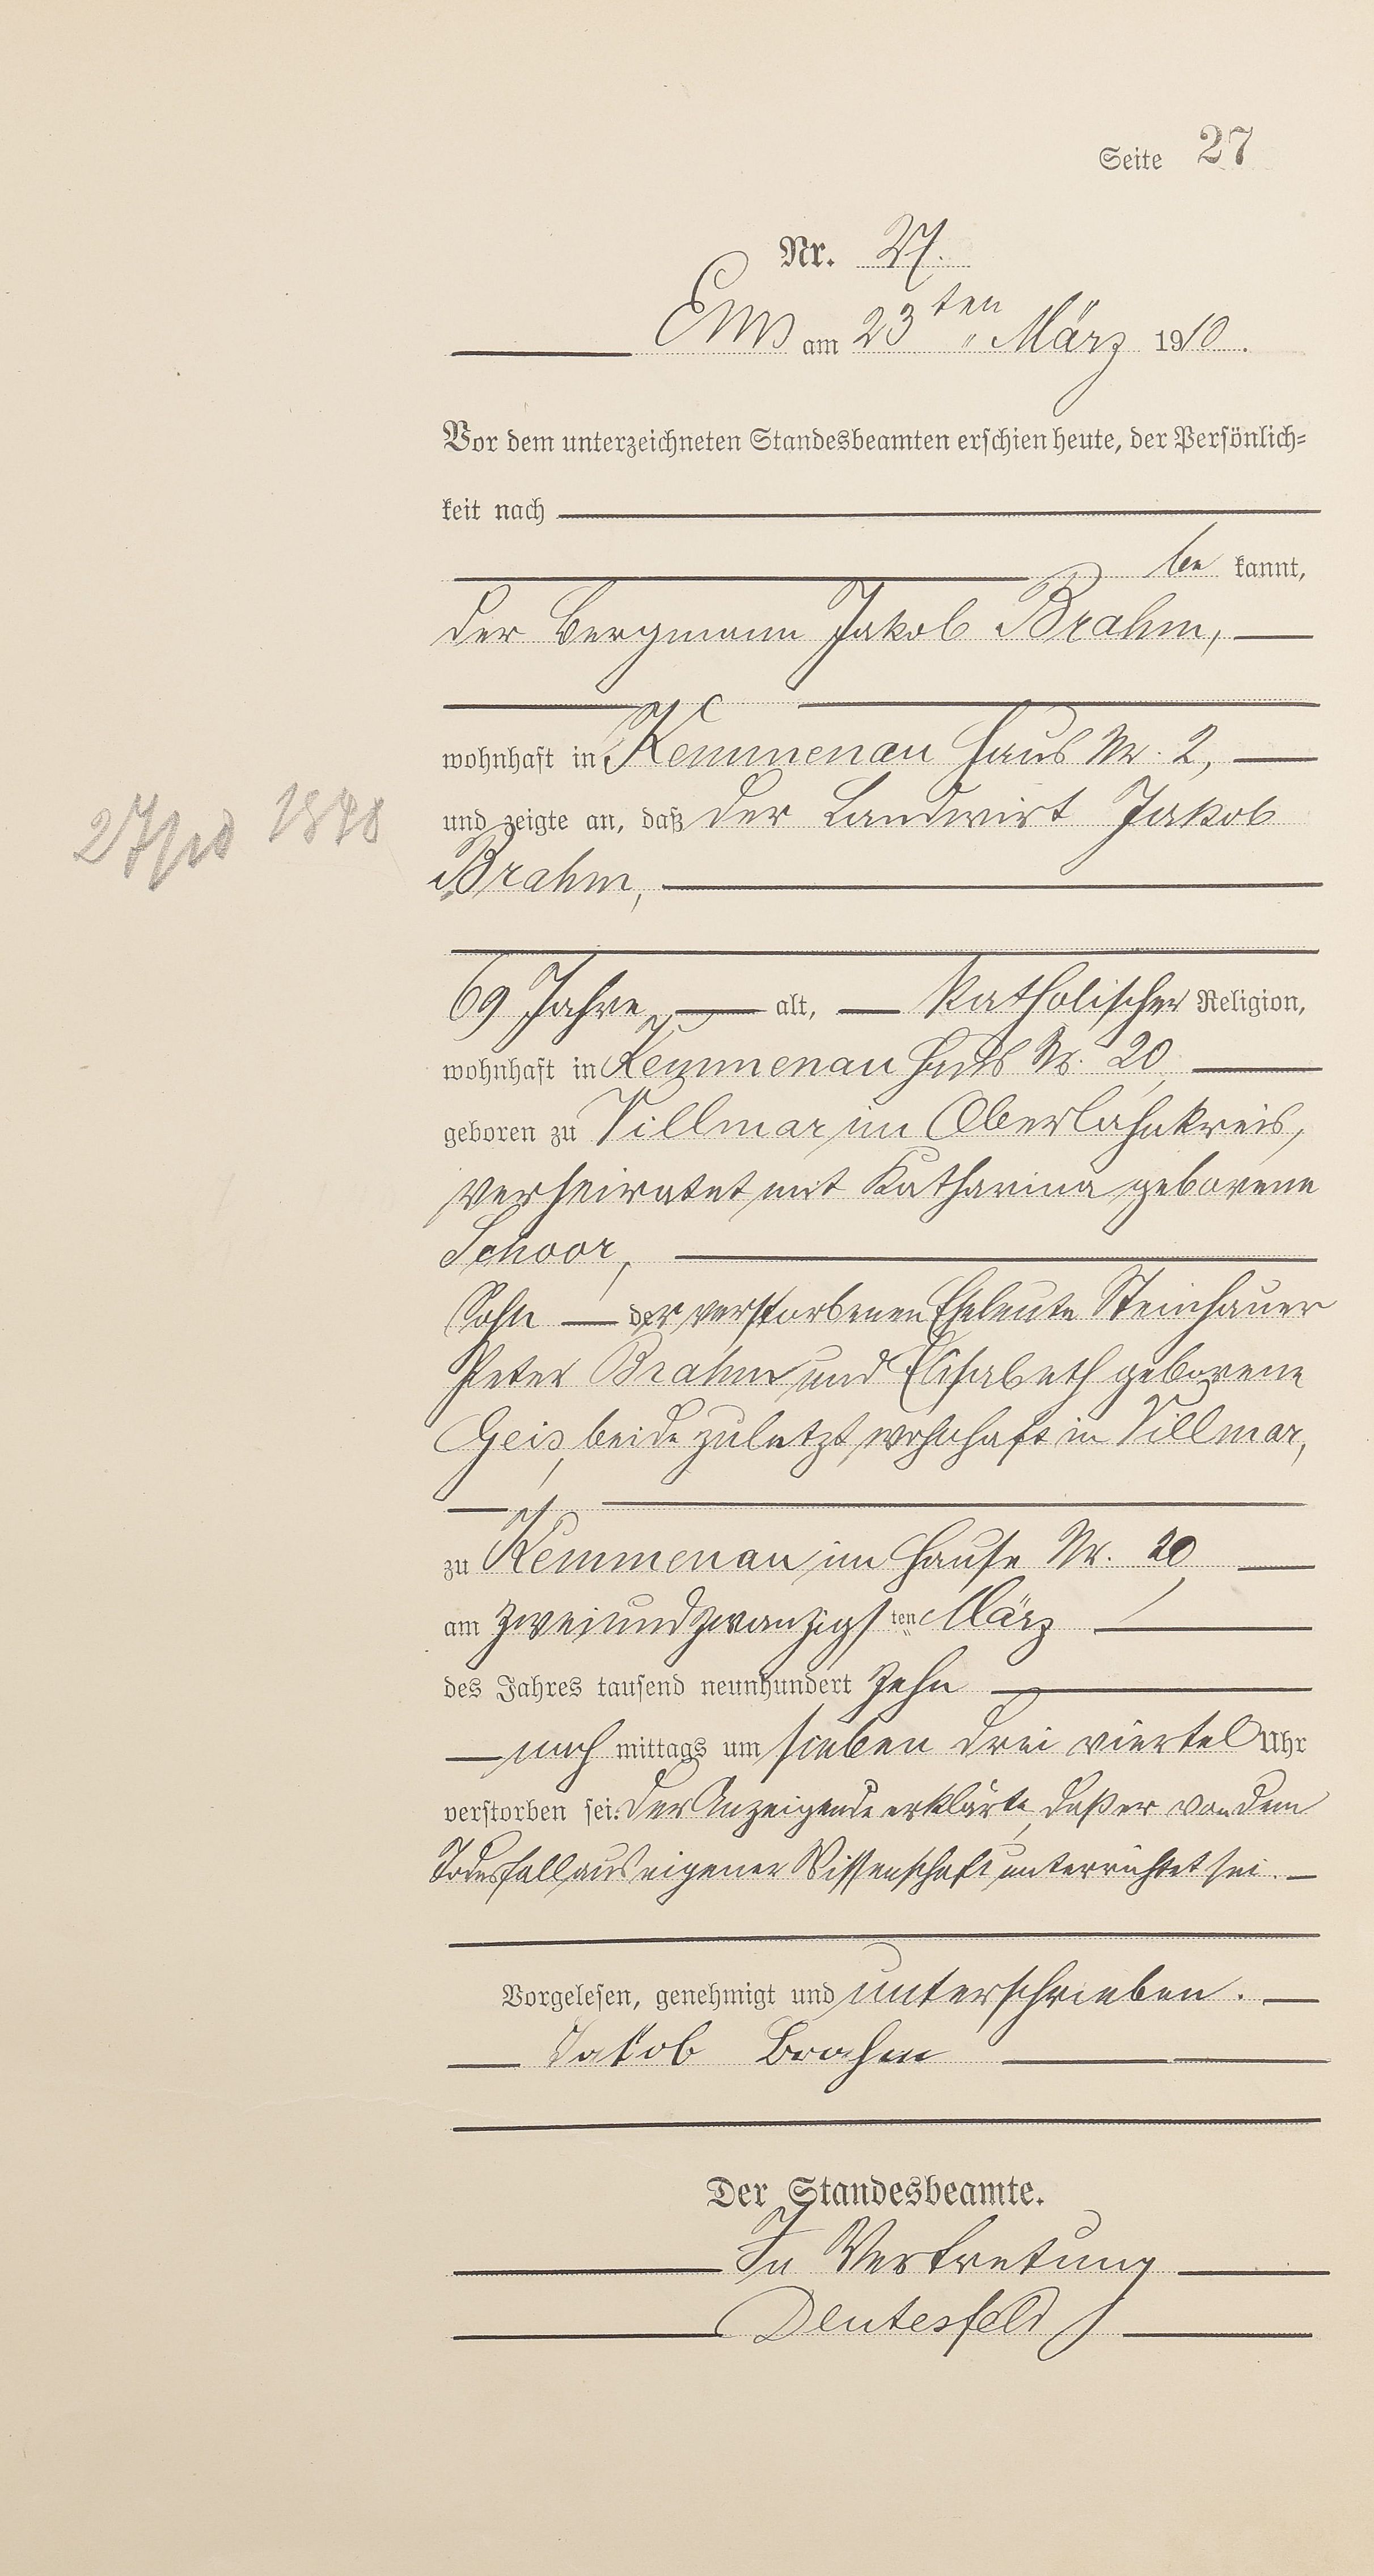 Seite 27
Nr. 27.
Ems am 23ten März 1910.
Vor dem unterzeichneten Standesbeamten erschien heute, der Persönlich-
keit nach
be kannt,
der Bergmann Jakob Brahm,
wohnhaft in Kemmenau Haus Nr. 2,
und zeigte an, daß der Landwirt Jakob
Brahm,
69 Jahre alt, katholischer Religion,
wohnhaft in Kemmenau Haus Nr. 20,
geboren zu Villmar im Oberlahnkreis,
verheiratet mit Katharina geborene
Schoor,
Sohn der verstorbenen Eheleute Steinhauer
Peter Brahm und Elisabeth geborene
Geis, beide zuletzt wohnhaft in Villmar,
zu Kemmenau im Hause Nr. 20,
am zweiundzwanzigsten März
des Jahres tausend neunhundert zehn
nach mittags um sieben drei viertel Uhr
verstorben sei. Der Anzeigende erklärte, daß er von dem
Todesfall aus eigener Wissenschaft unterrichtet sei.
Vorgelesen, genehmigt und unterschrieben.
Jakob Brahm
Der Standesbeamte.
In Vertretung
Deutesfeld